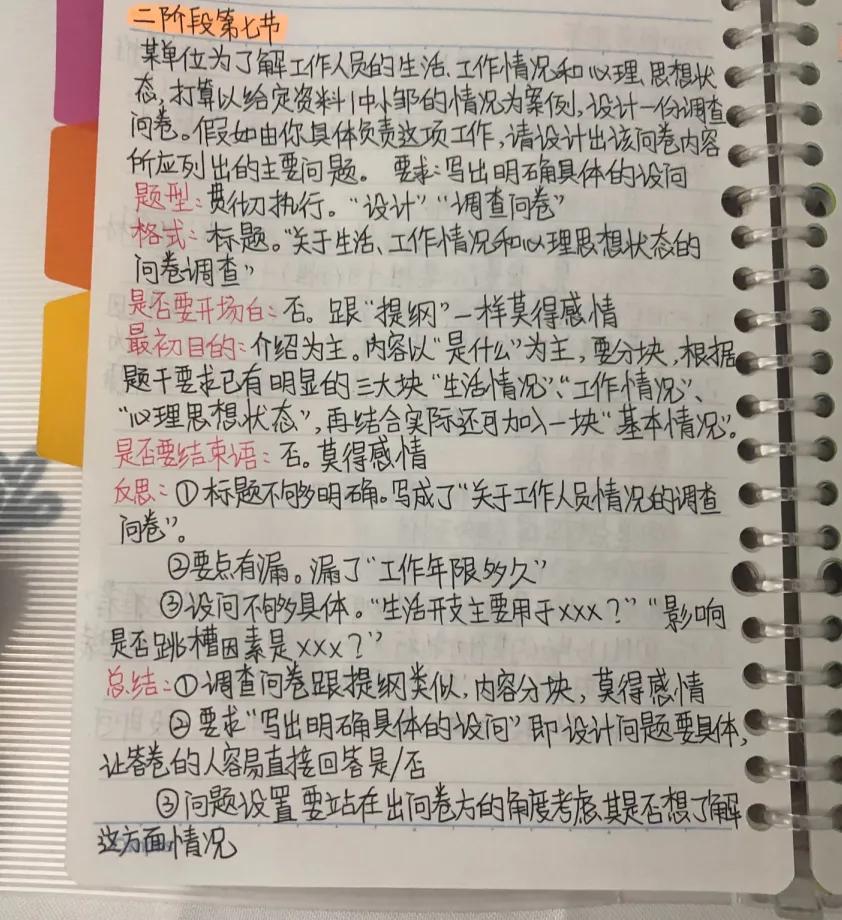 二阶段第七节
某单位为了解工作人员的生活、工作情况和心理、思想状
态,打算以给定资料1中小邹的情况为案例,设计一份调查
问卷。假如由你具体负责这项工作,请设计出该问卷内容
所应列出的主要问题。 要求:写出明确具体的设问
题型:贯彻执行。“设计”“调查问卷”
格式:标题。“关于生活、工作情况和心理思想状态的
问卷调查”
是否要开场白:否。跟“提纲”一样莫得感情
最初目的:介绍为主。内容以“是什么”为主,要分块,根据
题干要求已有明显的三大块“生活情况”、“工作情况”、
“心理思想状态”,再结合实际还可加入一块“基本情况”。
是否要结束语:否。莫得感情
反思:①标题不够明确。写成了“关于工作人员情况的调查
问卷”。
②要点有漏。漏了“工作年限多久”
③设问不够具体。“生活开支主要用于xxx?”“影响
是否跳槽因素是xxx?”
总结:①调查问卷跟提纲类似,内容分块,莫得感情
②要求“写出明确具体的设问”即设计问题要具体,
让答卷的人容易直接回答是/否
③问题设置要站在出问卷方的角度考虑其是否想了解
这方面情况